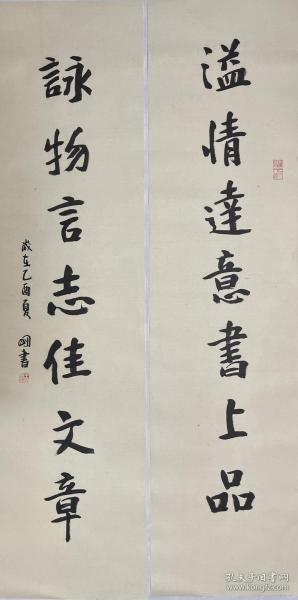 溢情達意書上品
詠物言志佳文章
歲在乙酉夏
書
孔夫子旧书网